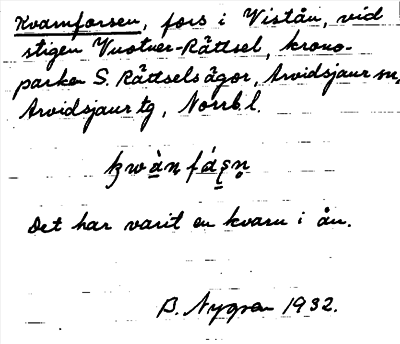 Kvarnforsen, fors i Viståu, vid
stigen Vuotner-Rättsel, krono-
parken S. Rättselsägor, Arvidsjaur sn,
Arvidsjaur tg, Norrb. l.
Det har varit en kvarn i ån.
B. Nygren 1932.